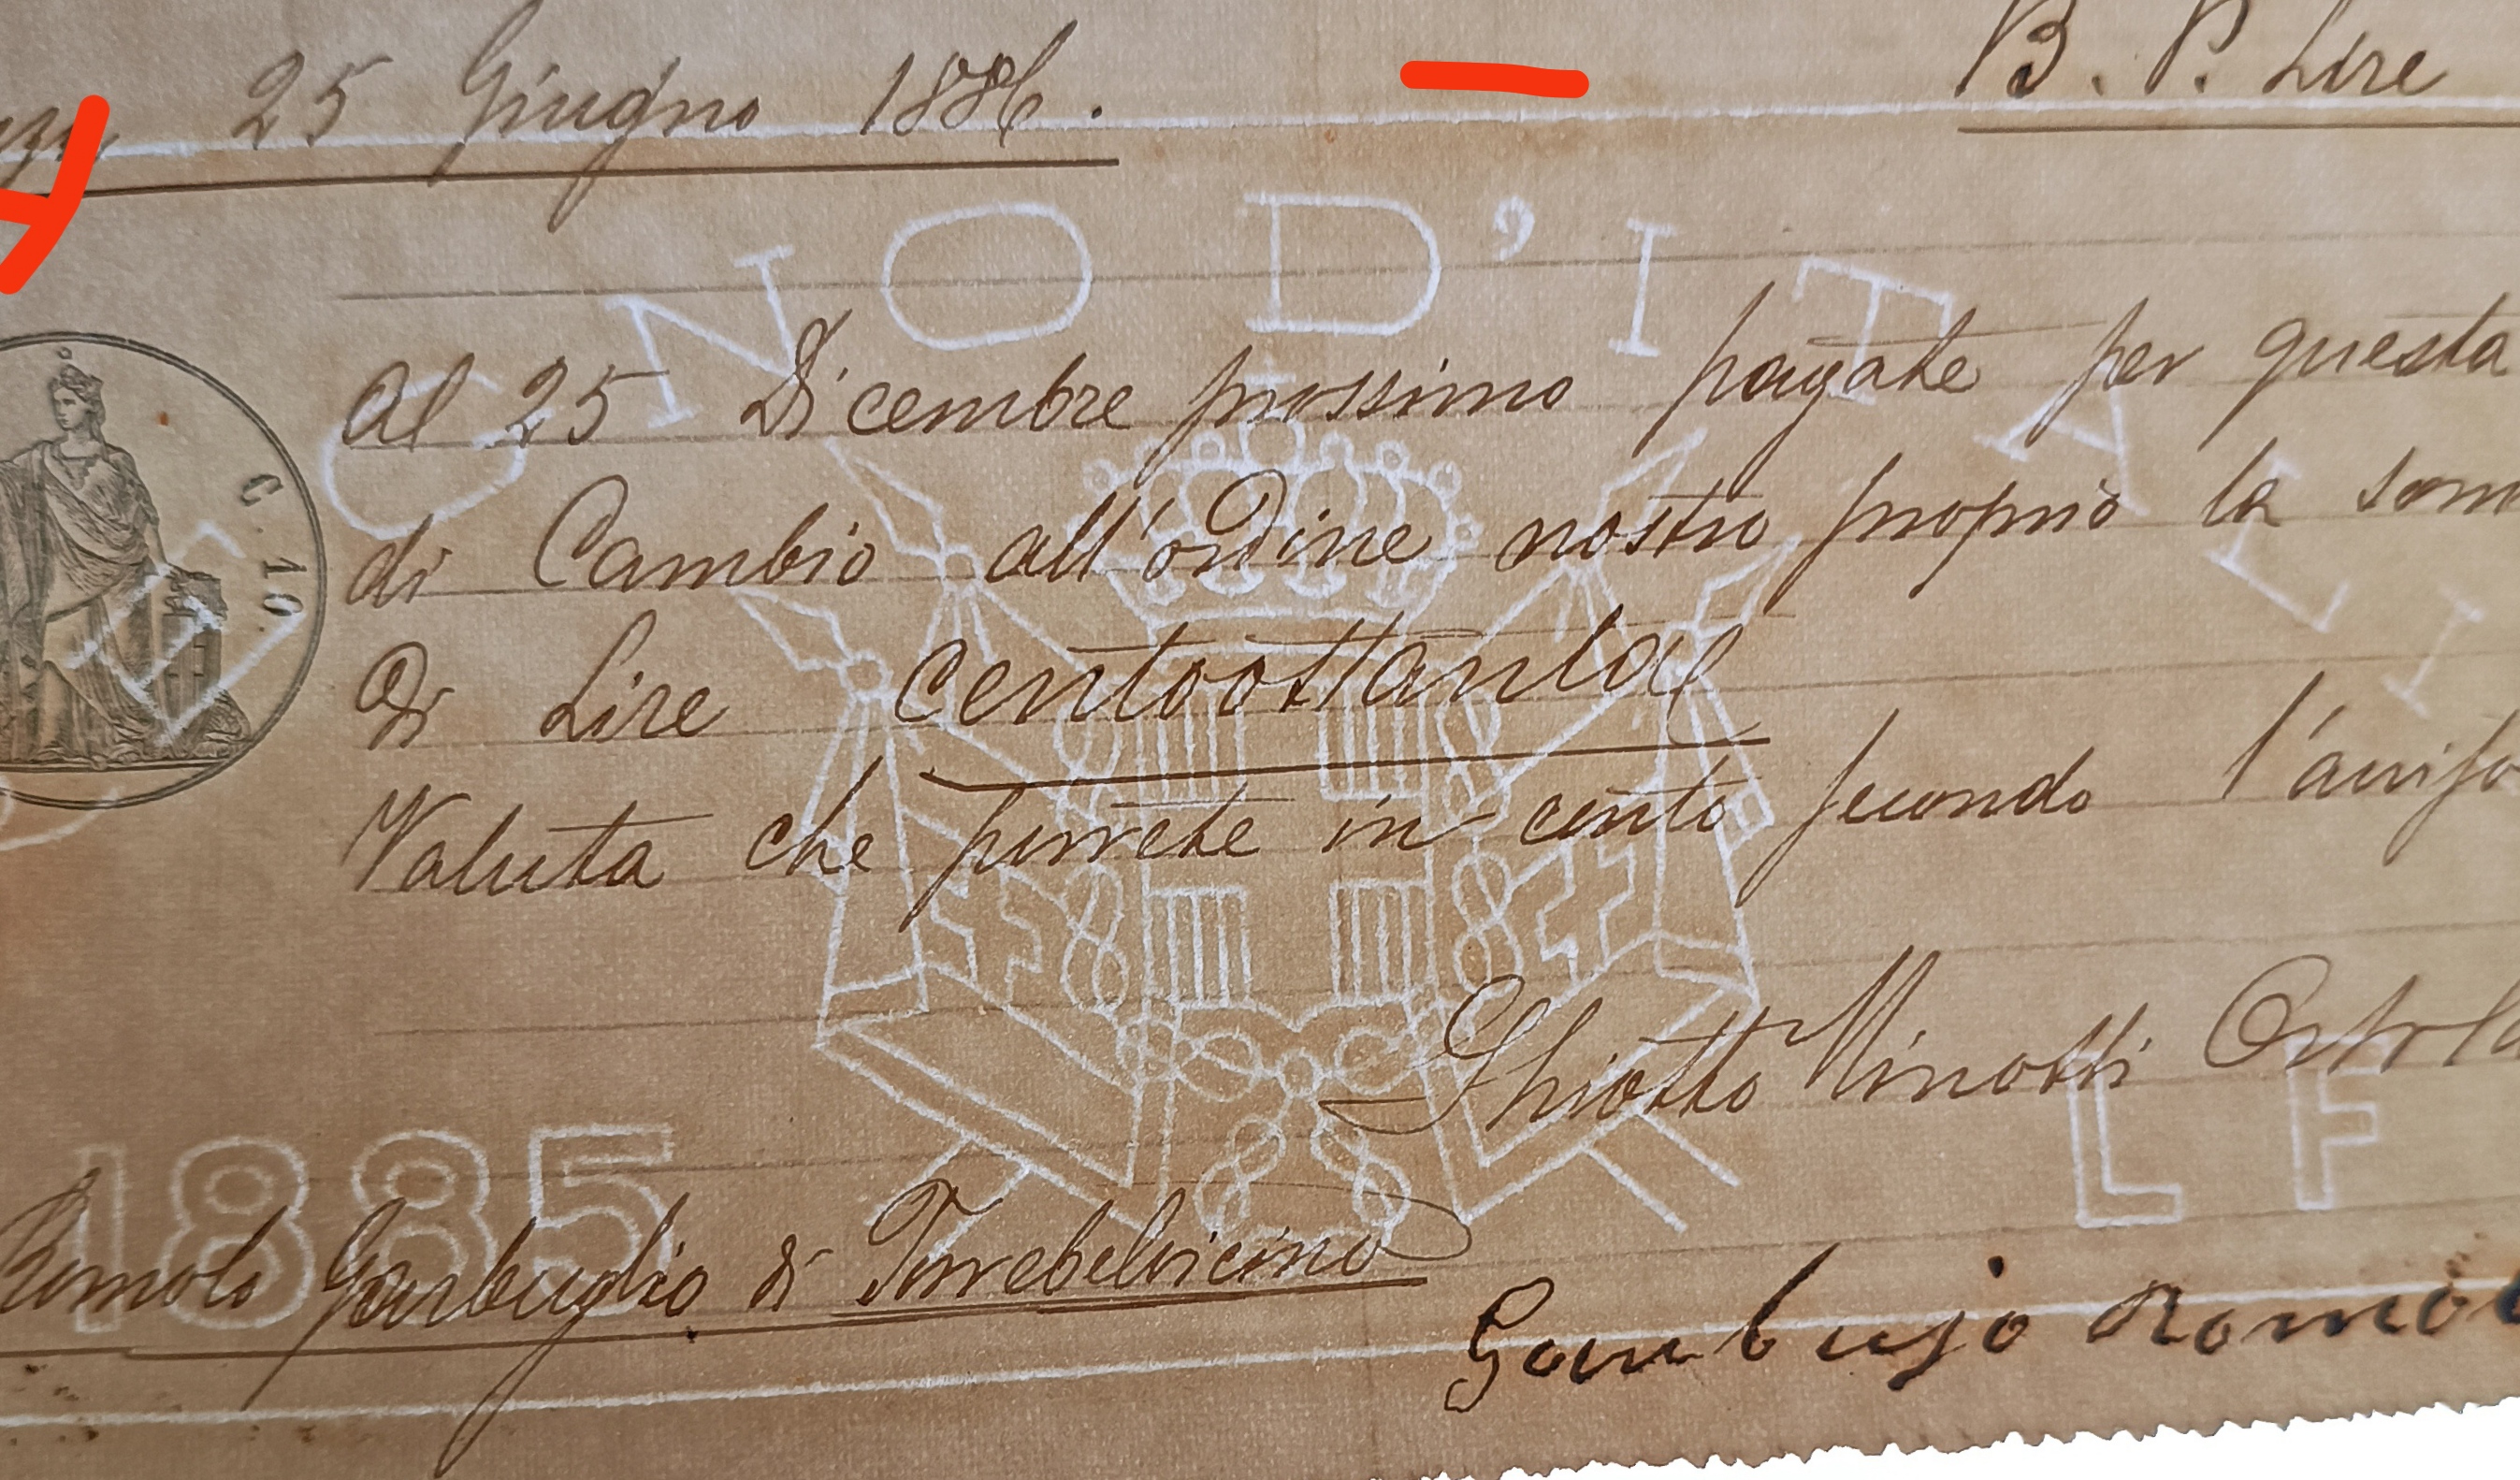 25 Giugno 1886. B. P. Lire
REGNO D'ITALI
C. 10.
Al 25 Dicembre prossimo pagate per questa
di Cambio all'ordine nostro proprio la som
di Lire centoottanta
Valuta che porrete in conto secondo l'avviso
Ghiotto Minotti
1885
L F
Romolo Garbuglio di Torrebelvicino
Garbujo Romol